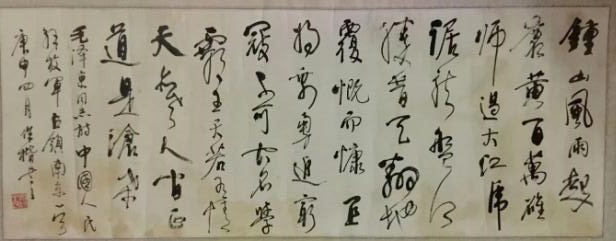 鍾山風雨起
蒼黃百萬雄
師過大江虎
踞龍盤今
勝昔天翻地
覆慨而慷宜
將剩勇追窮
寇不可沽名學
霸王天若有情
天亦老人间正
道是滄桑
毛泽東同志詩中國人民
解放軍占領南京一首
庚申四月